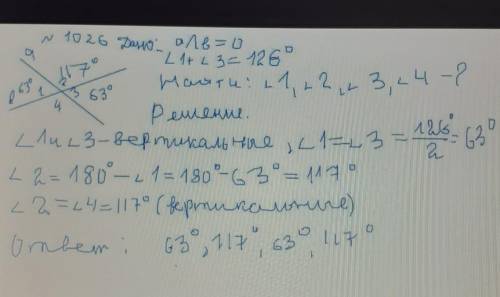 № 1026 Дано: a∩b=0
∠1+∠3=126°
Найти: ∠1, ∠2, ∠3, ∠4-?
Решение.
a
117°
b 63° 1 2 3 63°
4
∠1 и ∠3-вертикальные, ∠1=∠3=126°/2=63°
∠2=180°-∠1=180°-63°=117°
∠2=∠4=117° (вертикальные)
Ответ: 63°, 117°, 63°, 117°